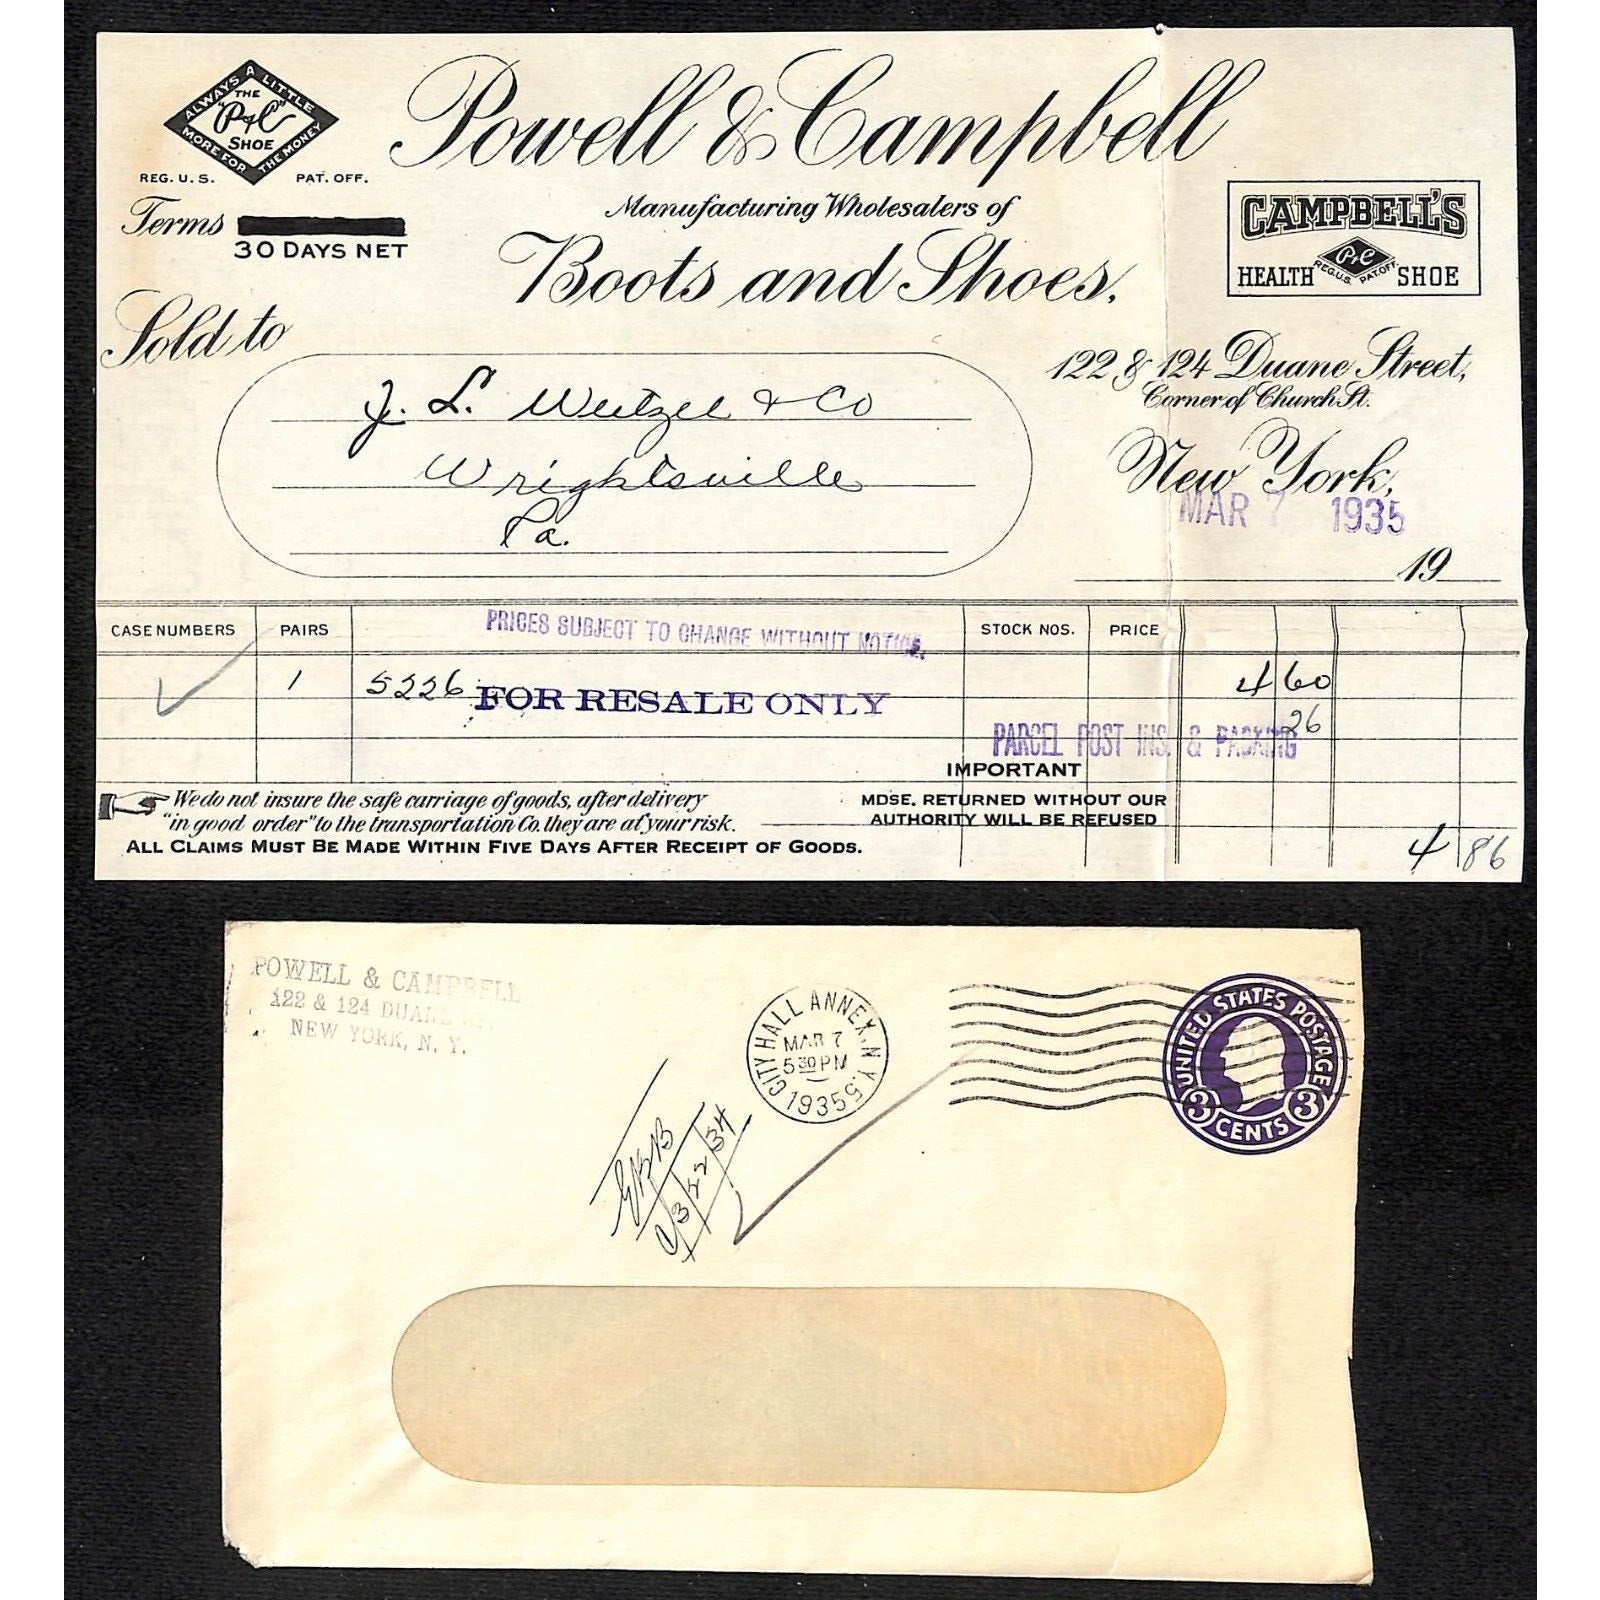 ALWAYS A LITTLE
MORE FOR THE MONEY
THE
"P & C"
SHOE
REG. U. S. PAT. OFF.
Powell & Campbell
Manufacturing Wholesalers of
Boots and Shoes.
Terms
30 DAYS NET
CAMPBELL'S
HEALTH P & C SHOE
REG. U.S. PAT. OFF.
Sold to
J. L. Weitzel & Co
Wrightsville
Pa.
122 & 124 Duane Street,
Corner of Church St.
New York,
MAR 7 1935
19
CASE NUMBERS PAIRS PRICES SUBJECT TO CHANGE WITHOUT NOTICE. STOCK NOS. PRICE
1 5226 FOR RESALE ONLY 4 60
PARCEL POST INS. & PACKING 26
IMPORTANT
MDSE. RETURNED WITHOUT OUR
AUTHORITY WILL BE REFUSED
We do not insure the safe carriage of goods, after delivery
"in good order" to the transportation Co. they are at your risk.
ALL CLAIMS MUST BE MADE WITHIN FIVE DAYS AFTER RECEIPT OF GOODS.
4 86
POWELL & CAMPBELL
122 & 124 DUANE
NEW YORK, N. Y.
CITY HALL ANNEX, N.Y.
MAR 7
5 30 PM
1935
UNITED STATES POSTAGE
3 CENTS 3